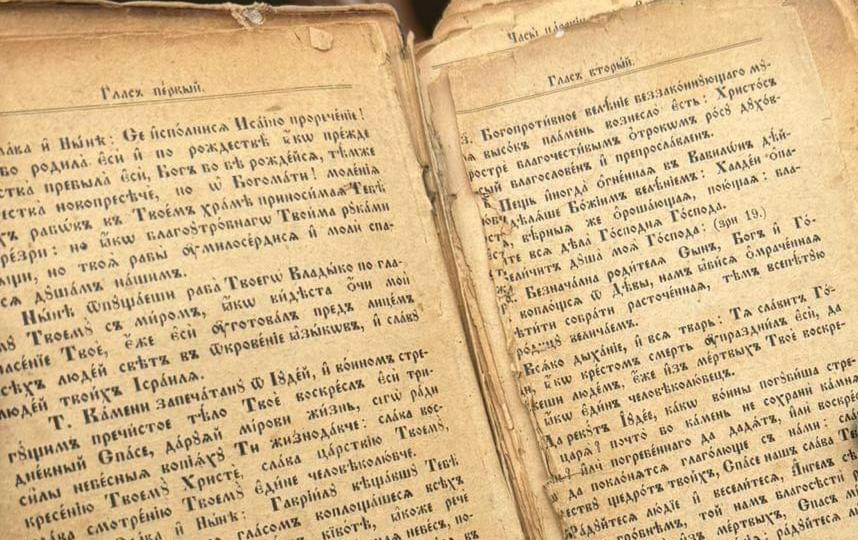 Гласъ пе́рвый.
и҆ Ны́нѣ: Се и҆спо́лнисѧ И҆са́їино прорече́нїе!
родила̀ є҆сѝ и҆ по рождествѣ̀ ꙗ҆́кѡ пре́жде
пребыла̀ є҆сѝ, Бо́гъ бо бѣ̀ рожде́йсѧ, тѣ́мже
новопресѣчѐ, но ѽ Богома́ти! моле́нїѧ
рабѡ́въ въ Твое́мъ хра́мѣ приноси̑маѧ Тебѣ̀
не пре́зри: но ꙗ҆́кѡ благоꙋтро́бнагѡ Твои́ма рꙋка́ми
носѧ́щи, но твоѧ̑ рабы̑ ᲂу҆милосе́рдисѧ и҆ молѝ спа-
сѧ дꙋша́мъ на́шымъ.
Ны́нѣ ѿпꙋща́еши раба̀ Твоего̀ Влады́ко по гла-
Твоемꙋ̀ съ ми́ромъ, ꙗ҆́кѡ ви́дѣста ѻ҆́чи моѝ
спасе́нїе Твоѐ, є҆́же є҆сѝ ᲂу҆гото́валъ пред̾ лице́мъ
всѣ́хъ люде́й свѣ́тъ въ ѿкрове́нїе ꙗ҆зы́кѡвъ, и҆ сла́вꙋ
люде́й твои́хъ І҆сра́илѧ.
Т. Ка́мени запеча́танꙋ ѿ І҆ꙋде́й, и҆ во́инѡмъ стре-
гꙋ́щымъ пречи́стое тѣ́ло Твоѐ воскре́слъ є҆сѝ три-
дне́вный Спа́се, да́рꙋѧй мі́рови жи́знь, сегѡ̀ ра́ди
си́лы небе́сныѧ вопїѧ́хꙋ Тѝ жизнода́вче: сла́ва вос-
кресе́нїю Твоемꙋ̀ Христѐ, сла́ва ца́рствїю Твоемꙋ̀,
сла́ва смотре́нїю Твоемꙋ̀ є҆ди́не человѣколю́бче.
Сла́ва и҆ Ны́нѣ: Гаврїи́лꙋ вѣща́вшꙋ Тебѣ̀
гла́сомъ воплоща́шесѧ всѣ́хъ
кївѡ́тѣ, ꙗ҆́коже речѐ
небе́съ, по-
въ
Часы̀
Гласъ вторы́й.
Богопроти́вное велѣ́нїе беззако́ннꙋющагѡ мꙋ-
высо́къ пла́мень вознесло̀ є҆́сть: Христо́съ
прострѐ благочести̑вымъ ѻ҆трокѡ́мъ ро́сꙋ дꙋхо́в-
благослове́нъ и҆ препросла́вленъ.
Пе́щь и҆ногда̀ ѻ҆́гненнаѧ въ Вавѷлѡ́нѣ дѣ́й-
дѣлѧ́ше Бо́жїимъ велѣ́нїемъ: Халде́и ѻ҆па-
вѣ̑рныѧ же ѻ҆роша́ющаѧ, пою́щыѧ: бла-
те всѧ̑ дѣла̀ Госпо́днѧ Го́спода.
Вели́читъ дꙋша̀ моѧ̀ Го́спода: (зри 19.)
Безнача́льна роди́телѧ Сы́нъ, Бо́гъ и҆ Го́-
воплѡ́щсѧ ѿ Дѣ́вы, на́мъ ꙗ҆ви́сѧ ѡ҆мраче́ннаѧ
свѣти́ти собра́ти расточе́ннаѧ, тѣ́мъ всепѣ́тꙋю
велича́емъ.
Всѧ́ко дыха́нїе, и҆ всѧ̀ тва́рь: Тѧ̀ сла́витъ Го́-
ꙗ҆́кѡ кресто́мъ сме́рть ᲂу҆праздни́лъ є҆сѝ, да
люде́мъ, є҆́же и҆з̾ ме́ртвыхъ Твоѐ воскре-
ꙗ҆́кѡ є҆ди́нъ человѣколю́бецъ.
Да рекꙋ́тъ І҆ꙋде́є, ка́кѡ во́ини погꙋби́ша стре-
царѧ̀? почто̀ бо ка́мень не сохранѝ ка́мнѧ
и҆лѝ погребе́ннаго да дадѧ́тъ, и҆лѝ воскре́с-
да поклонѧ́тсѧ глаго́люще съ на́ми: сла́-
щедро́тъ твои́хъ, Спа́се на́шъ сла́ва Те-
Ра́дꙋйтесѧ лю́дїе и҆ весели́тесѧ, А҆́нгелъ сѣ-
гро́бнѣмъ, то́й на́мъ благовѣстѝ
и҆з̾ ме́ртвыхъ, Спа́съ
ра́дꙋйтесѧ